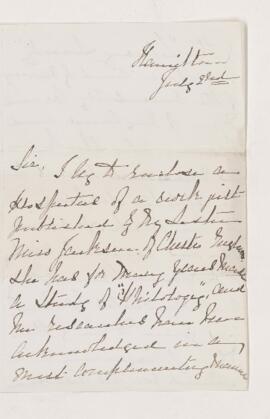 Hamilton
July 22nd
Sir. I beg to enclose a
prospectus of a work just
published by my Sister
Miss Jackson of Chester
She has for many years made
a Study of "Philology", and
her researches have been
acknowledged in a
most complimentary manner